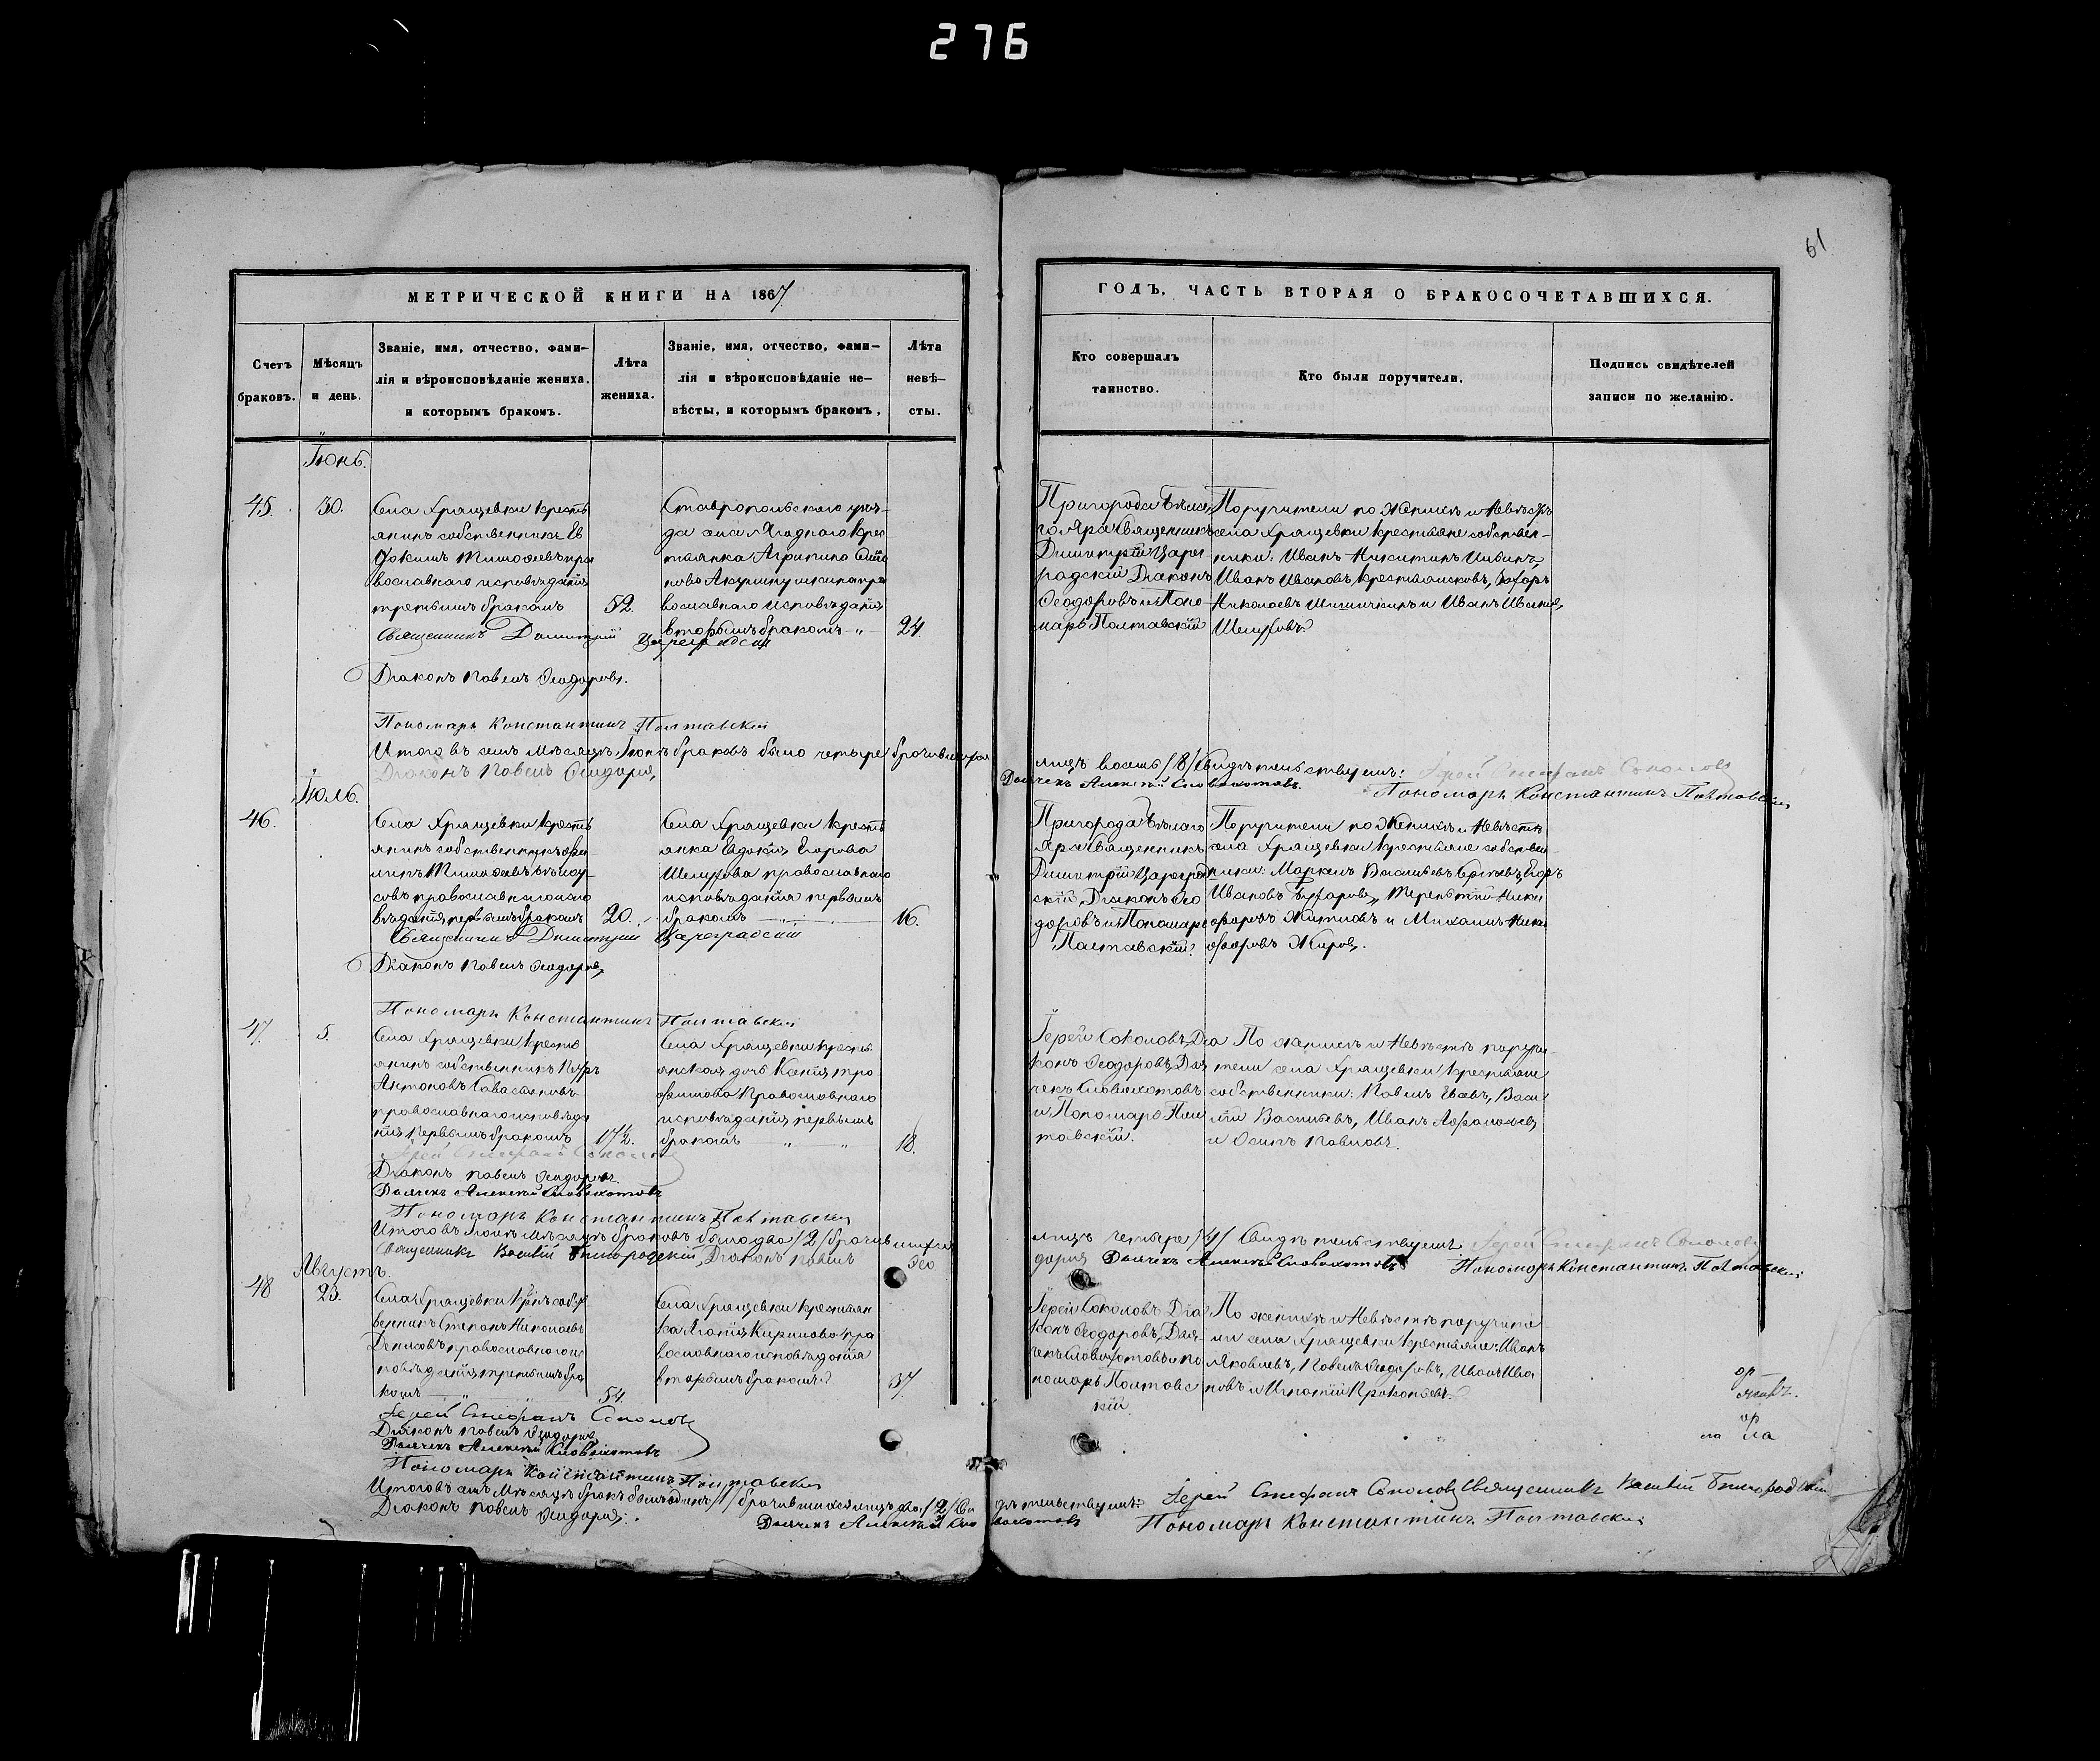 276
61
МЕТРИЧЕСКОЙ КНИГИ НА 1867
ГОДЪ, ЧАСТЬ ВТОРАЯ О БРАКОСОЧЕТАВШИХСЯ.
Счетъ браковъ.
Мѣсяцъ и день.
Званіе, имя, отчество, фами-
лія и вѣроисповѣданіе жениха,
и которымъ бракомъ.
Лѣта жениха.
Званіе, имя, отчество, фами-
лія и вѣроисповѣданіе не-
вѣсты, и которымъ бракомъ,
Лѣта невѣ-
сты.
Кто совершалъ
таинство.
Кто были поручители.
Подпись свидѣтелей
записи по желанію.
Іюнь.
45.
30.
Села Хрящевки кресть
янинъ собственникъ Ев
докимъ Тимофеевъ пра
вославнаго исповѣданія
третьимъ бракомъ
52.
Ставропольскаго уѣз-
да села Ягоднаго крес
тьянка Агрипина
православнаго исповѣданія
вторымъ бракомъ
24.
Пригорода Бѣла
го Яра Священникъ
Димитрій Царег
радскій Діаконъ
Ѳеодоровъ и Поно-
марь Полтавскій
Поручители по Женихѣ и Невѣстѣ
села Хрящевки крестьяне собствен-
ники: Иванъ Никитинъ
Иванъ Ивановъ
Николаевъ и Иванъ Ивановъ
Священникъ Димитрій Цареградскій
Діаконъ Павелъ Ѳеодоровъ.
Пономарь Константинъ Полтавскій
Итого въ семъ мѣсяцѣ Іюнѣ браковъ было четыре брачившихся
лицъ восемь /8/ Свидѣтельствуемъ: Іерей Стефанъ Соколовъ
Діаконъ Павелъ Ѳеодоровъ,
Дьячекъ Алексѣй Словохотовъ.
Пономарь Константинъ Полтавскій
Іюль.
46.
Села Хрящевки кресть
янинъ собственникъ
Тимофеевъ
совъ православнаго испо
вѣданія первымъ бракомъ
20.
Села Хрящевки кресть
янка Евдокія Егорова
православнаго
исповѣданія первымъ
бракомъ
16.
Пригорода Бѣлаго
Яра Священникъ
Димитрій Цареград
скій, Діаконъ Ѳео
доровъ и Пономарь
Полтавскій.
Поручители по Женихѣ и Невѣстѣ
села Хрящевки крестьяне собствен
ники: Маркелъ Васильевъ Егоръ
Ивановъ Терентій Ники
форовъ и Михаилъ Ники
форовъ Жировъ.
Священникъ Димитрій Цареградскій
Діаконъ Павелъ Ѳеодоровъ,
Пономарь Константинъ Полтавскій
47.
5.
Села Хрящевки кресть
янинъ собственникъ Петръ
Антоновъ Савастьяновъ
православнаго исповѣда
нія первымъ бракомъ
17½.
Села Хрящевки кресть
янская дочь Ксенія Тро
фимова Православнаго
исповѣданія первымъ
бракомъ
18.
Іерей Соколовъ, Діа
конъ Ѳеодоровъ, Дья
чекъ Словохотовъ
и Пономарь Пол
тавскій.
По женихѣ и Невѣстѣ поручи-
тели села Хрящевки крестьяне
собственники: Павелъ Васи
лій Васильевъ, Иванъ
и Осипъ Павловъ.
Іерей Стефанъ Соколовъ
Діаконъ Павелъ Ѳеодоровъ
Дьячекъ Алексѣй Словохотовъ
Пономарь Константинъ Полтавскій
Итого въ Іюлѣ мѣсяцѣ браковъ было два /2/ брачившихся
лицъ четыре /4/ Свидѣтельствуемъ Іерей Стефанъ Соколовъ
Священникъ Василій Бѣлгородскій, Діаконъ Павелъ Ѳео
доровъ Дьячекъ Алексѣй Словохотовъ Пономарь Константинъ Полтавскій
Августъ.
48
23.
Села Хрящевки собст
венникъ Степанъ Николаевъ
Денисовъ православнаго ис
повѣданія третьимъ бра
комъ
54.
Села Хрящевки крестьян
ка Кирилова пра
вославнаго исповѣданія
вторымъ бракомъ
37.
Іерей Соколовъ Діа
конъ Ѳеодоровъ, Дья-
чекъ Словохотовъ и по
номарь Полтавс
кій
По женихѣ и Невѣстѣ поручите
ли села Хрящевки крестьяне: Иванъ
Яковлевъ, Павелъ Ѳедоровъ, Иванъ Ива
новъ и Игнатій Прокопьевъ.
Іерей Стефанъ Соколовъ
Діаконъ Павелъ Ѳеодоровъ
Дьячекъ Алексѣй Словохотовъ
Пономарь Константинъ Полтавскій
Итого въ семъ мѣсяцѣ бракъ былъ одинъ /1/ брачившихся лицъ два /2/ Сви
дѣтельствуемъ: Іерей Стефанъ Соколовъ Священникъ Василій Бѣлгородскій
Діаконъ Павелъ Ѳеодоровъ,
Дьячекъ Алексѣй Сло
вохотовъ
Пономарь Константинъ Полтавскій